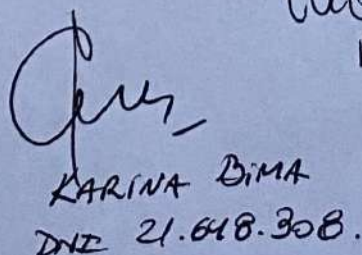 KARINA BIMA
DNI 21.648.308.